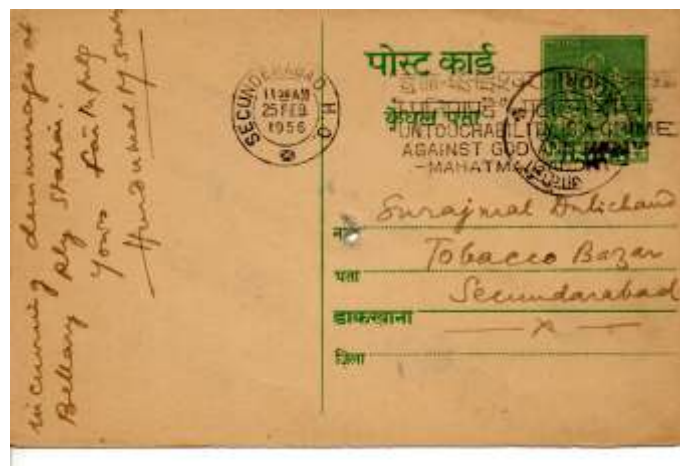 incurring demurrages at
Bellary Rly Station.
Yours faithfully
पोस्ट कार्ड
केवल पता
SECUNDERABAD H.O
11 AM
25 FEB
1956
UNTOUCHABILITY IS A CRIME
AGAINST GOD AND MAN
-MAHATMA
Surajmal Dulichand
Tobacco Bazar
पता
Secundarabad
डाकखाना
जिला